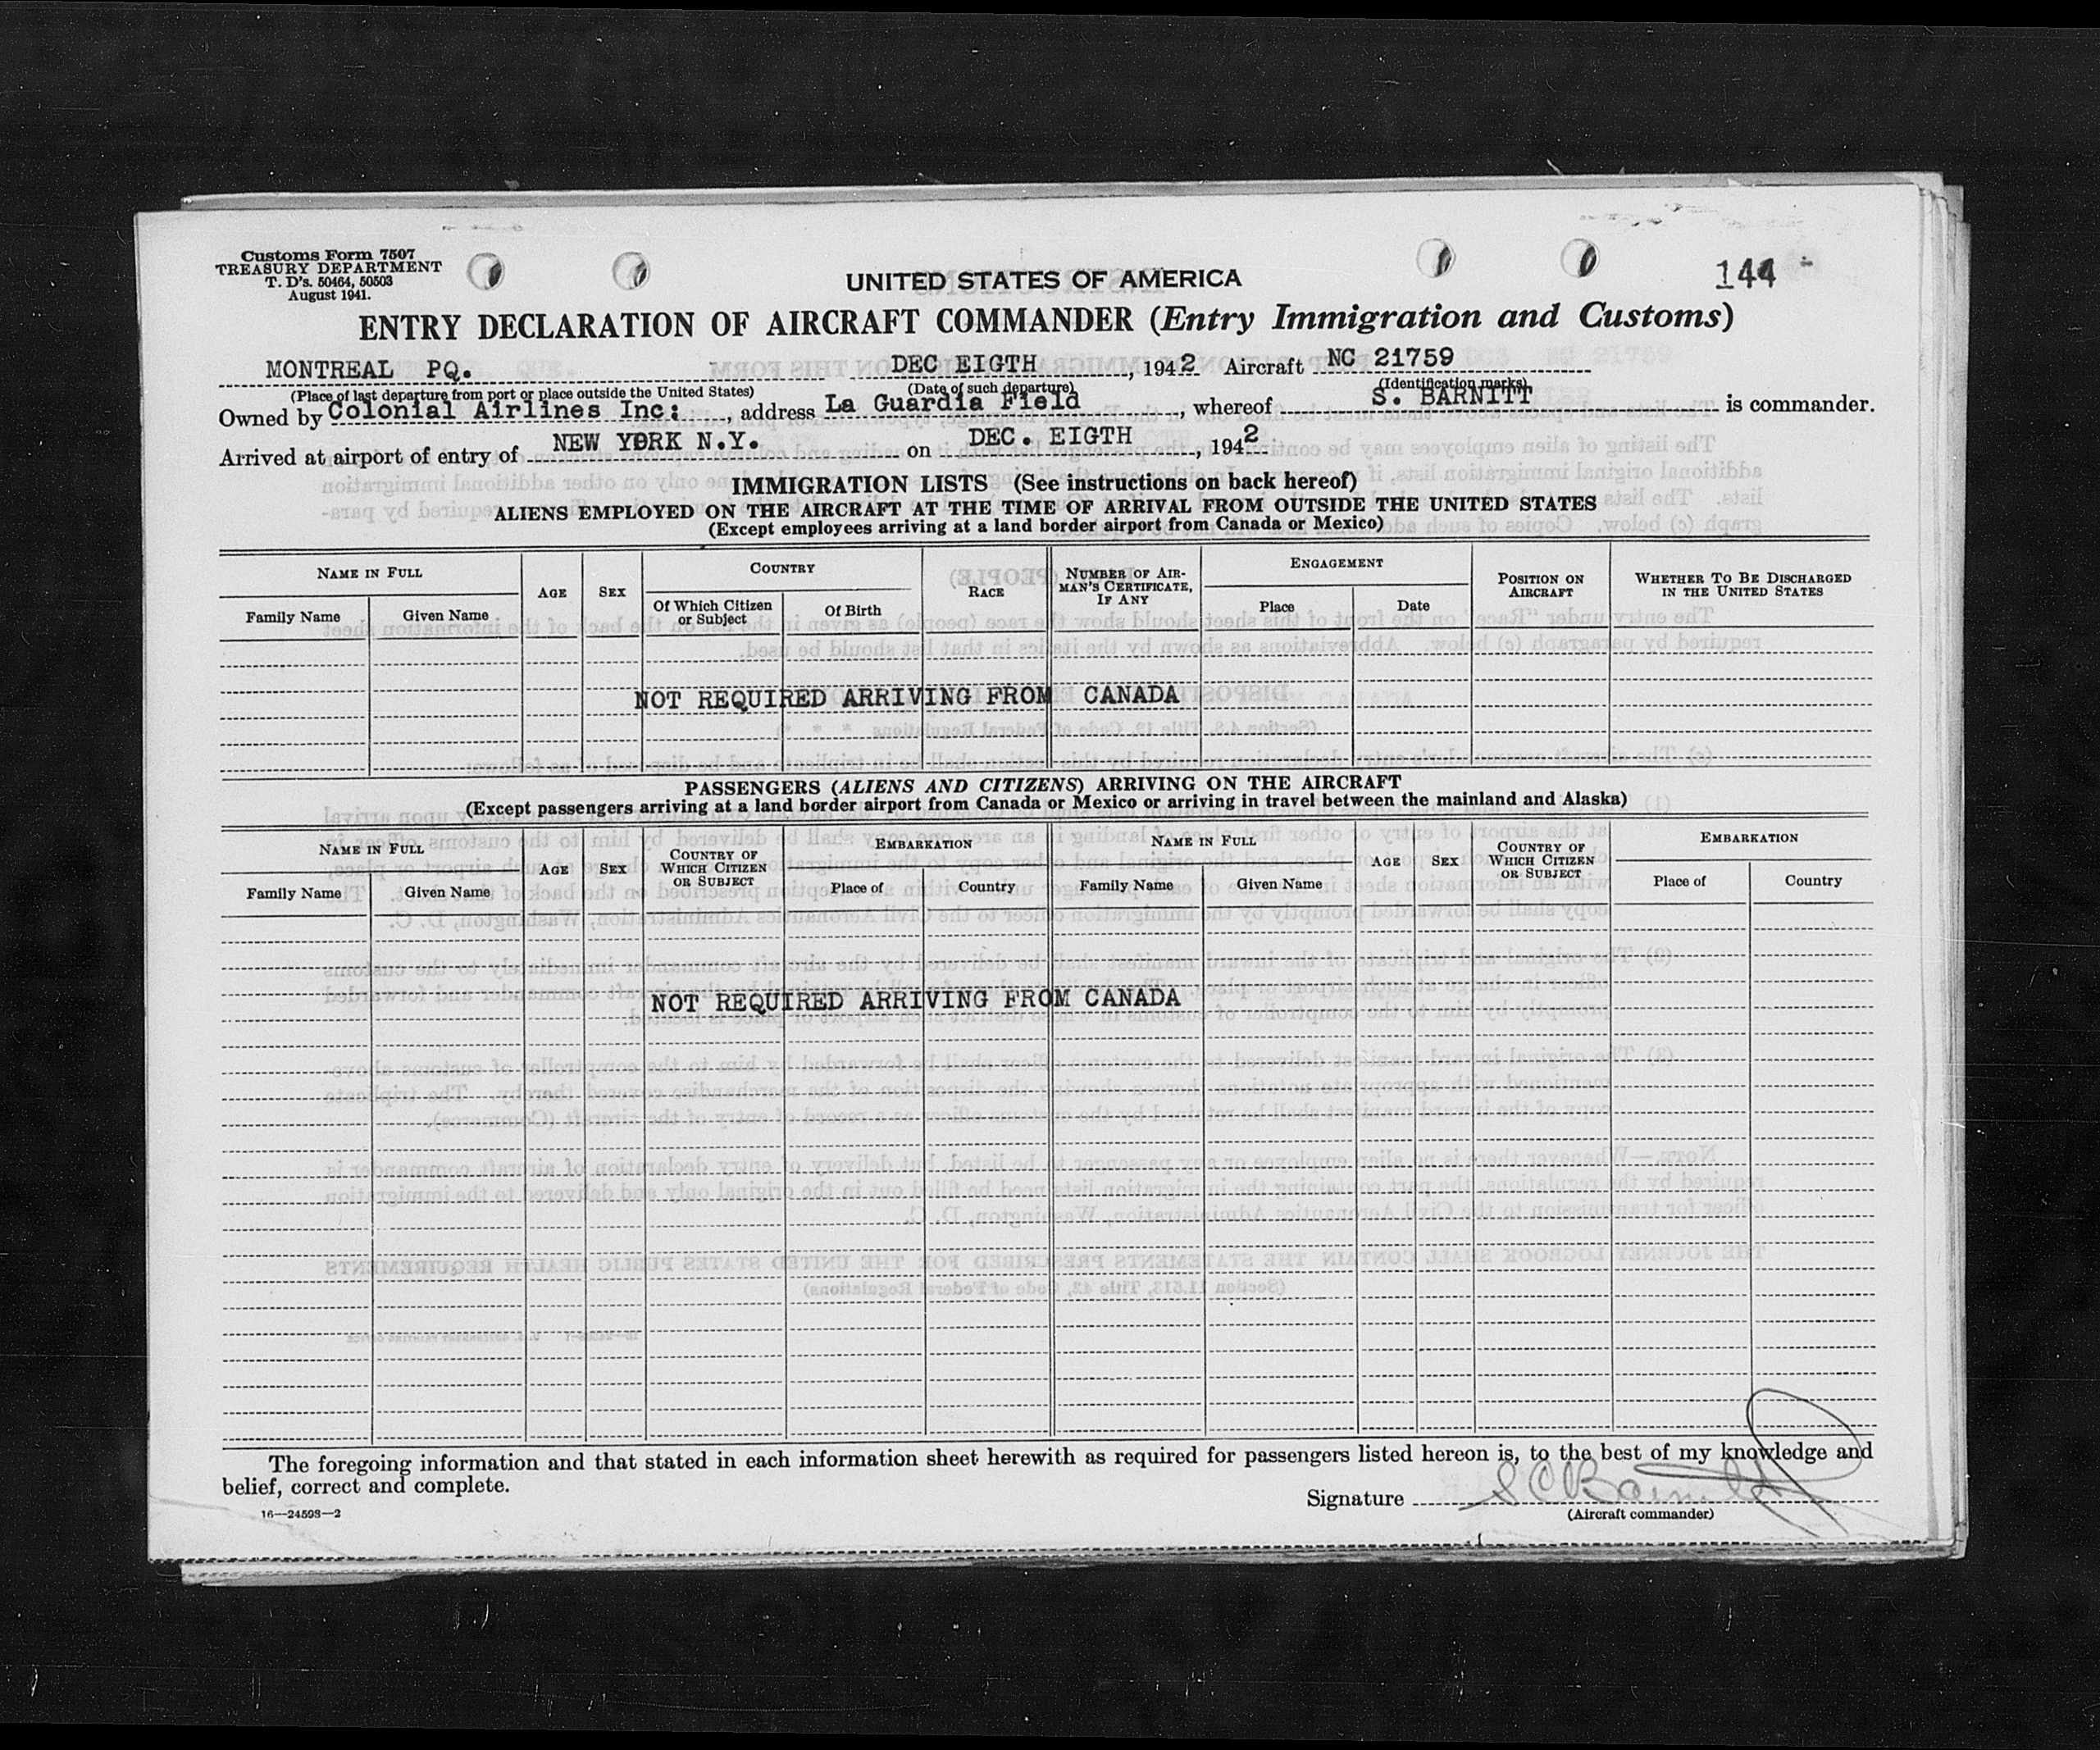 Customs Form 7507
TREASURY DEPARTMENT
T. D's. 50464, 50503
August 1941.
144
UNITED STATES OF AMERICA
ENTRY DECLARATION OF AIRCRAFT COMMANDER (Entry Immigration and Customs)
MONTREAL PQ. DEC EIGTH, 1942 Aircraft NC 21759
(Place of last departure from port or place outside the United States) (Date of such departure) (Identification marks)
Owned by Colonial Airlines Inc:, address La Guardia Field, whereof S. BARNITT is commander.
Arrived at airport of entry of NEW YORK N.Y. on DEC. EIGTH, 1942
IMMIGRATION LISTS (See instructions on back hereof)
ALIENS EMPLOYED ON THE AIRCRAFT AT THE TIME OF ARRIVAL FROM OUTSIDE THE UNITED STATES
(Except employees arriving at a land border airport from Canada or Mexico)
NAME IN FULL
Family Name Given Name
AGE
SEX
COUNTRY
Of Which Citizen or Subject
Of Birth
RACE
NUMBER OF AIRMAN'S CERTIFICATE, IF ANY
ENGAGEMENT
Place Date
POSITION ON AIRCRAFT
WHETHER TO BE DISCHARGED IN THE UNITED STATES
NOT REQUIRED ARRIVING FROM CANADA
PASSENGERS (ALIENS AND CITIZENS) ARRIVING ON THE AIRCRAFT
(Except passengers arriving at a land border airport from Canada or Mexico or arriving in travel between the mainland and Alaska)
NAME IN FULL
Family Name Given Name
AGE
SEX
COUNTRY OF WHICH CITIZEN OR SUBJECT
EMBARKATION
Place of Country
NAME IN FULL
Family Name Given Name
AGE
SEX
COUNTRY OF WHICH CITIZEN OR SUBJECT
EMBARKATION
Place of Country
NOT REQUIRED ARRIVING FROM CANADA
The foregoing information and that stated in each information sheet herewith as required for passengers listed hereon is, to the best of my knowledge and
belief, correct and complete.
Signature S C Barnitt
(Aircraft commander)
16—24593—2